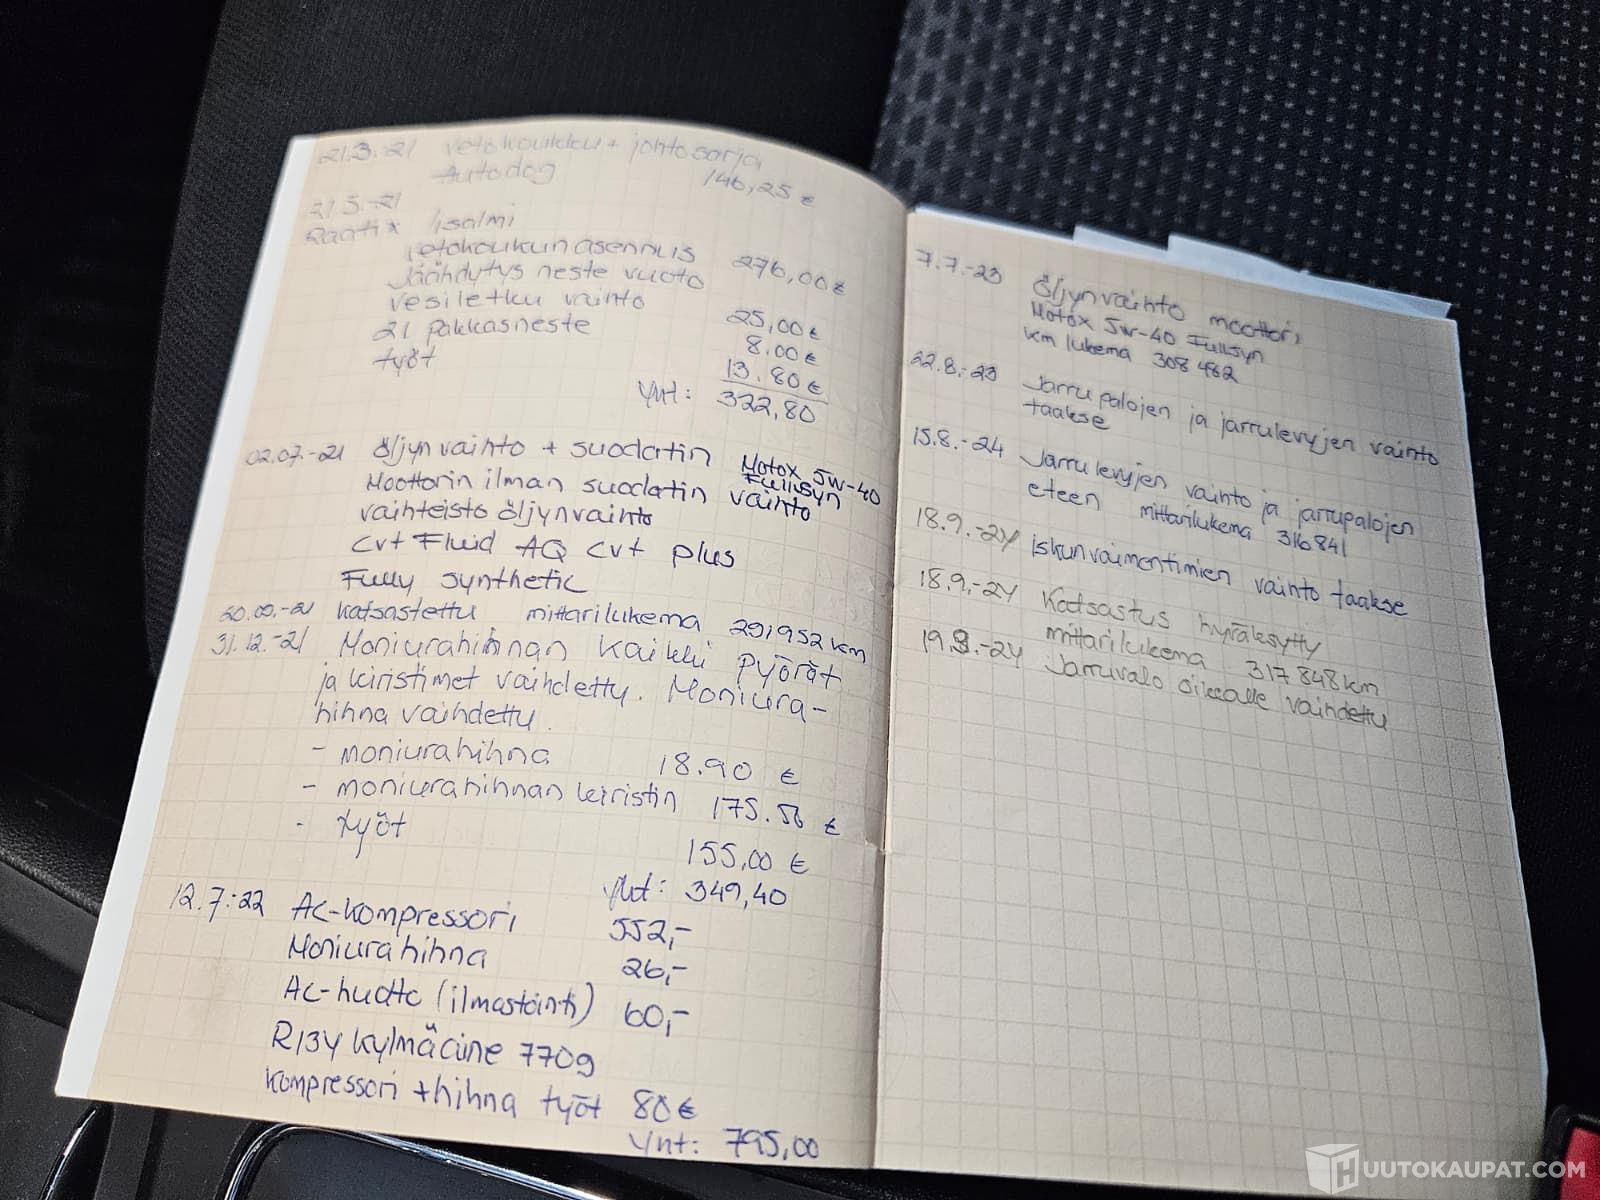 21.3.-21 Vetokoukku + johtosarja
Autodog 146,25 €
21.5.-21
Raatix Iisalmi
Vetokoukun asennus 276,00 €
Jäähdytys neste vuoto
vesiletku vaihto 25,00 €
2l pakkasneste 8.00 €
työt 13.80 €
Yht: 322,80
02.07.-21 öljyn vaihto + suodatin Motox 5w-40
Fullsyn
Moottorin ilman suodatin vaihto
vaihteisto öljynvaihto
CVT Fluid AQ CVT plus
Fully synthetic
30.09.-21 katsastettu mittarilukema 291952 km
31.12.-21 Moniurahihnan kaikki pyörät
ja kiristimet vaihdettu. Moniura-
hihna vaihdettu.
- moniurahihna 18.90 €
- moniurahihnan kiristin 175.50 €
- työt 155,00 €
Yht: 349,40
12.7.-22 AC-kompressori 552,-
Moniurahihna 26,-
AC-huolto (ilmastointi) 60,-
R134 kylmäaine 770g
kompressori + hihna työt 80 €
Yht: 795,00
7.7.-23 öljynvaihto moottori
Motox 5w-40 Fullsyn
km lukema 308 462
22.8.-23 Jarrupalojen ja jarrulevyjen vaihto
taakse
15.8.-24 Jarrulevyjen vaihto ja jarrupalojen
eteen mittarilukema 316841
18.9.-24 iskunvaimentimien vaihto taakse
18.9.-24 Katsastus hyväksytty
mittarilukema 317 848 km
19.9.-24 Jarruvalo oikealle vaihdettu
HUUTOKAUPAT.COM